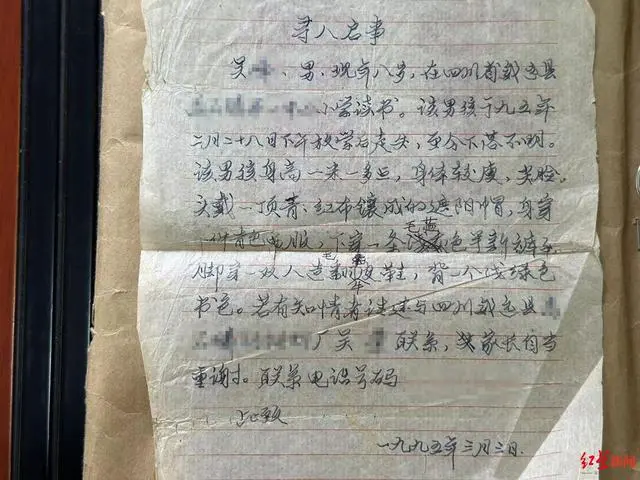 寻人启事
吴、男、现年八岁，在四川省威远县
小学读书。该男孩于九五年
二月二十八日下午放学后走失，至今下落不明。
该男孩身高一米一多点，身体较瘦，尖脸。
头戴一顶青、红布镶成的遮阳帽，身穿
一件青色毛服，下穿一条毛蓝色半新裤子
脚穿一双人造毛翻皮鞋，背一个浅绿色
书包。若有知情者请速与四川威远县
厂吴 联系，其家长自当
重谢。联系电话号码
此致
一九九五年三月三日.
红星新闻